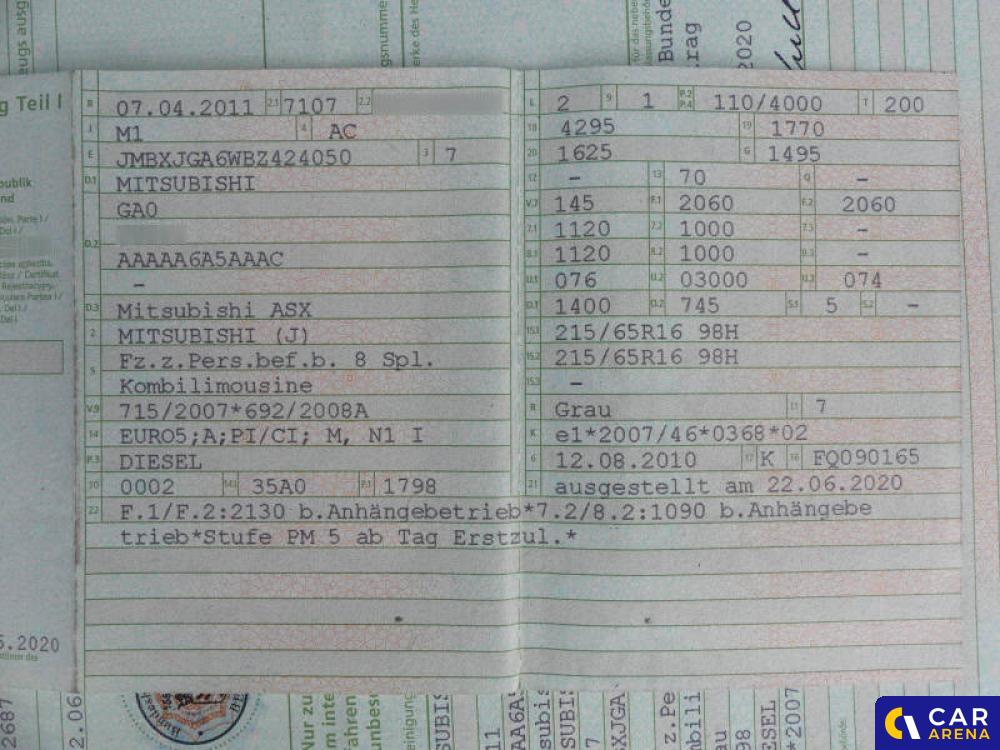 g Teil I
B 07.04.2011 2.1 7107 2.2
J M1 4 AC
E JMBXJGA6WBZ424050 3 7
D.1 MITSUBISHI
GA0
D.2
AAAAA6A5AAAC
–
D.3 Mitsubishi ASX
2 MITSUBISHI (J)
5 Fz.z.Pers.bef.b. 8 Spl.
Kombilimousine
V.9 715/2007*692/2008A
14 EURO5;A;PI/CI; M, N1 I
P.3 DIESEL
10 0002 14.1 35A0 P.1 1798
L 2 9 1 P.2 P.4 110/4000 T 200
18 4295 19 1770
20 1625 G 1495
12 – 13 70 Q –
V.7 145 F.1 2060 F.2 2060
7.1 1120 7.2 1000 7.3 –
8.1 1120 8.2 1000 8.3 –
U.1 076 U.2 03000 U.3 074
O.1 1400 O.2 745 S.1 5 S.2 –
15.1 215/65R16 98H
15.2 215/65R16 98H
15.3 –
R Grau 11 7
K e1*2007/46*0368*02
6 12.08.2010 17 K 16 FQ090165
21 ausgestellt am 22.06.2020
22 F.1/F.2:2130 b.Anhängebetrieb*7.2/8.2:1090 b.Anhängebe
trieb*Stufe PM 5 ab Tag Erstzul.*
publik
nd
5.2020
Bunde
rag
2020
2687
2.06
Nur zu
m inte
fahren
unbes
CAR
ARENA